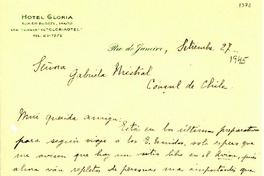 HOTEL GLORIA
Rio de Janeiro, Setiembre 27,
1945
Señora
Gabriela Mistral
Consul de Chile
Mui querida amiga:
Está en los últimos preparativos
para seguir viaje a los E. Unidos, solo espero que
me avisen que hay un sitio libre en el avion, pues
ahora van repletos de personas mas importantes que